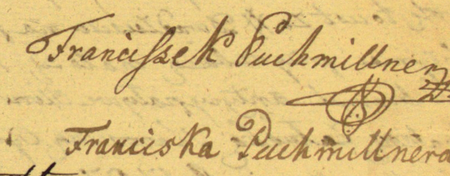 Franciſzek Puchmillner
Franciska Puchmillnera